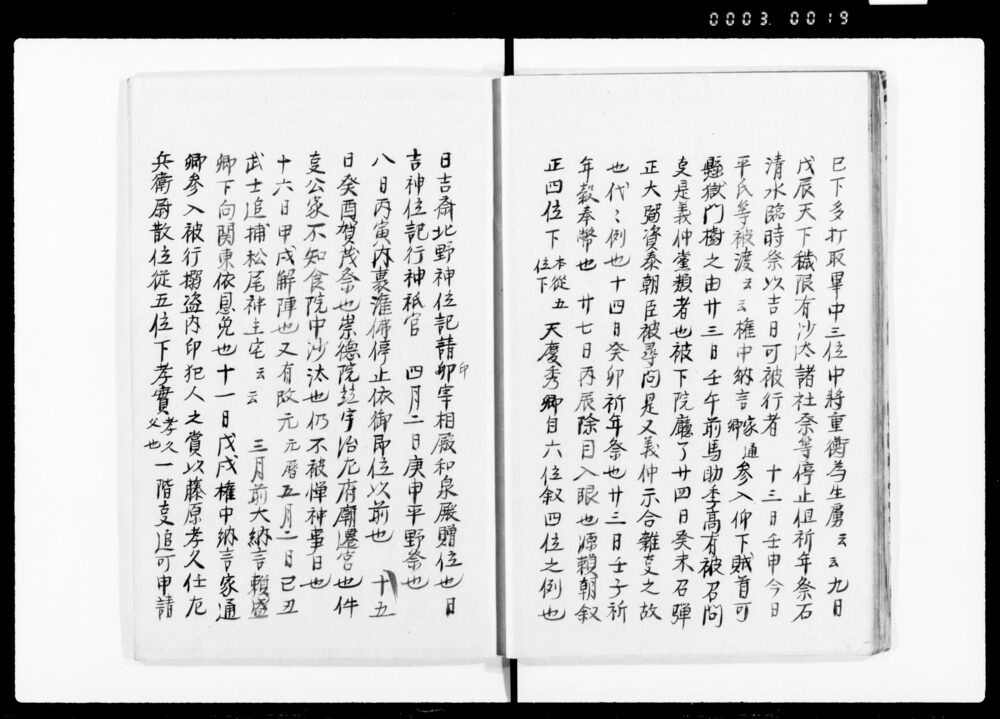 0003.0019
已下多打取畢中三位中將重衡為生虜云云九日
戊辰天下穢限有沙汰諸社祭等停止但祈年祭石
清水臨時祭以吉日可被行者 十三日壬申今日
平氏等被渡云云權中納言家通卿參入仰下賊首可
懸獄門樹之由廿三日壬午前馬助季高有被召問
㕝是義仲堂類者也被下院廳了廿四日癸未召彈
正大弼資泰朝臣被尋問是又義仲示合雜㕝之故
也代〻例也十四日癸卯祈年祭也廿三日壬子祈
年穀奉幣也 廿七日丙辰除目入眼也源賴朝叙
正四位下本從五位下 天慶秀卿自六位叙四位之例也
日吉斎北野神位記請卯印宰相殿和泉殿贈位也日
吉神位記行神祇官 四月二日庚申平野祭也
八日丙寅内裏潅佛停止依御即位以前也 十五
日癸酉賀茂祭也崇德院并宇治左府廟遷宮也件
㕝公家不知食院中沙汰也仍不被憚神事日也
十六日甲戌解陣也又有改元元曆五月二日己丑
武士追捕松尾神主宅云云 三月前大納言賴盛
卿下向関東依恩免也十一日戊戌權中納言家通
卿参入被行搦盗内印犯人之賞以藤原孝久任左
兵衛尉散位從五位下孝實孝久父也一階㕝追可申請